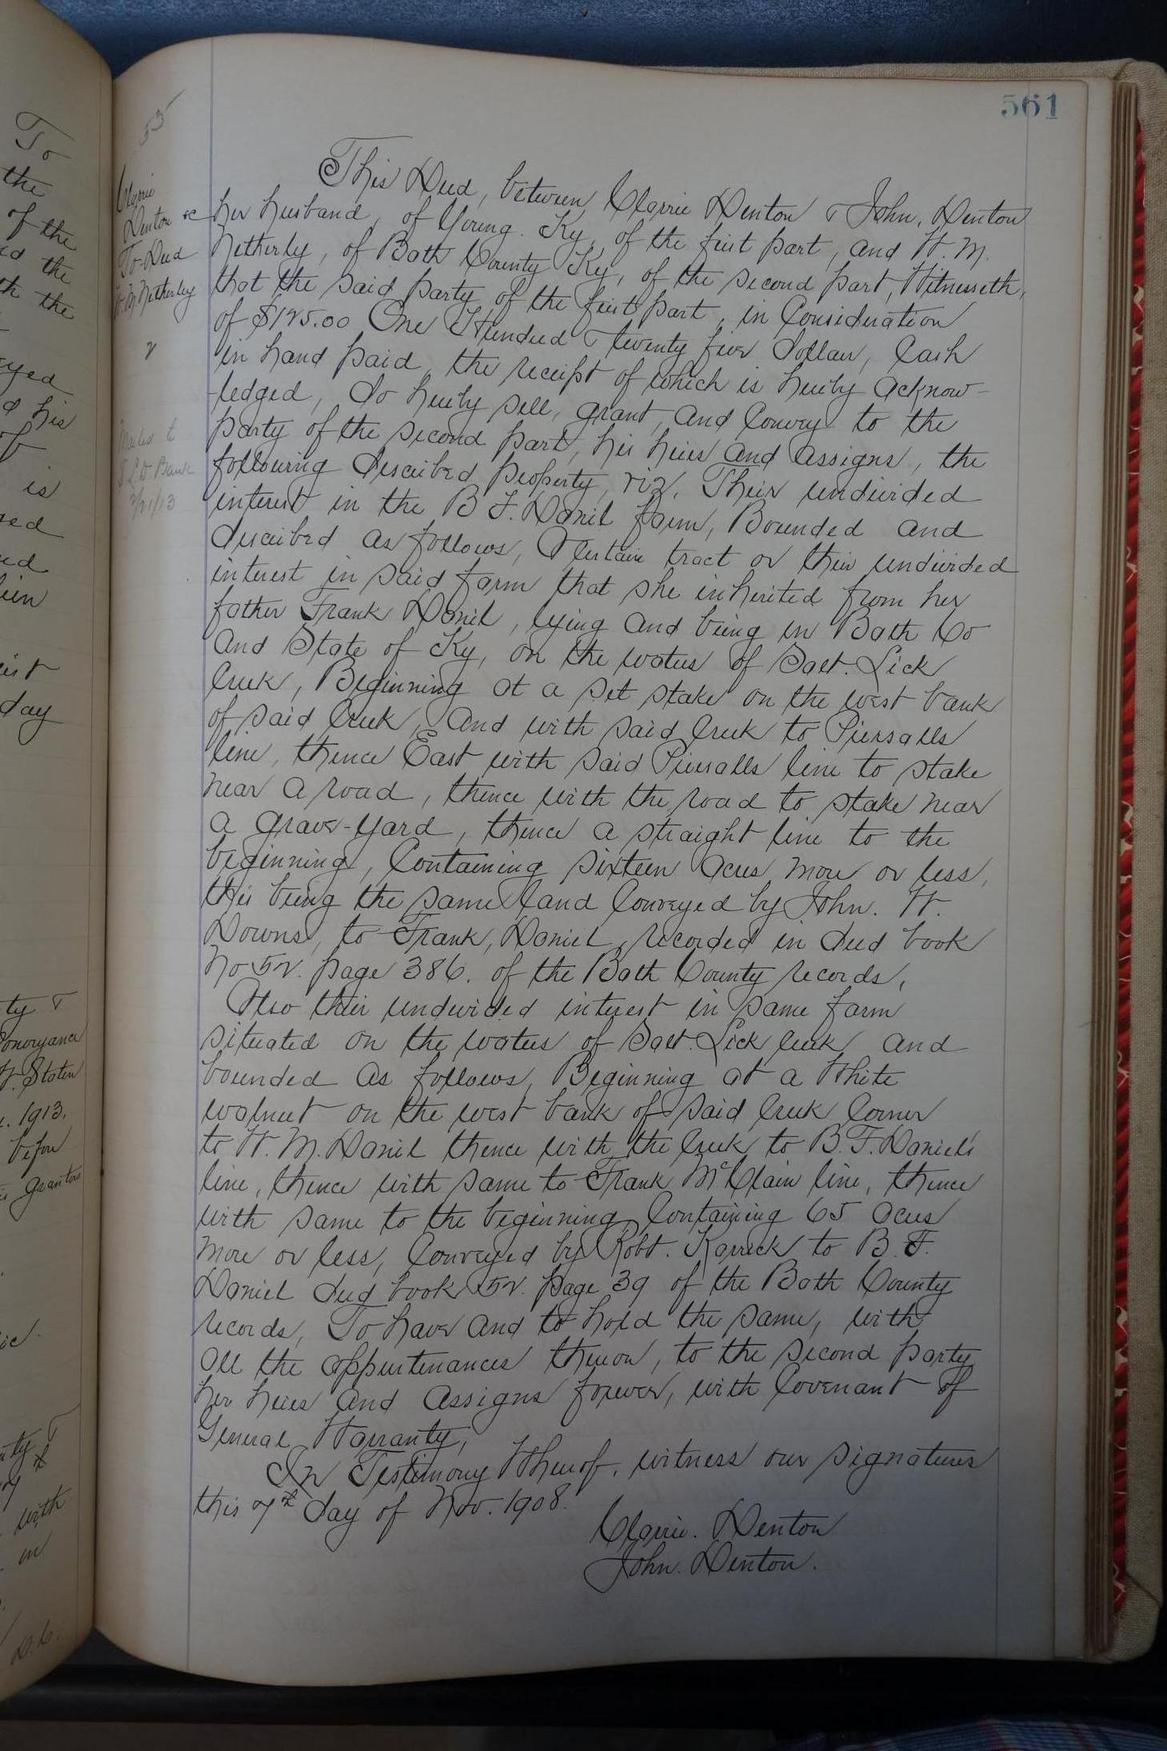 561
53
Clarrie
Denton &c
To Deed
W. M. Netherley
This Deed, between Clarrie Denton & John, Denton
her husband, of Young. Ky, of the first part, and W. M.
Netherly, of Bath County Ky, of the second part, Witnesseth,
that the said party of the first part, in Consideration
of $125.00 One Hundred & twenty five Dollars, Cash
in hand paid, the receipt of which is hereby acknow-
ledged, do hereby sell, grant, and Convey to the
party of the second part, his heirs and assigns, the
following described property, viz. Their undivided
interest in the B F. Daniel farm, Bounded and
described as follows, A Certain tract or their undivided
interest in said farm that she inherited from her
father Frank Daniel, lying and being in Bath Co
and State of Ky, on the waters of Salt. Lick
Creek, Beginning at a set stake on the west bank
of said Creek, and with said Creek to Piersalls
line, thence East with said Piersalls line to stake
near a road, thence with the road to stake near
a grave-yard, thence a straight line to the
beginning, Containing sixteen acres more or less,
this being the same land Conveyed by John. W.
Downs, to Frank, Daniel, recorded in deed book
No 52. page 386. of the Bath County records,
Also their undivided interest in same farm
situated on the waters of Salt. Lick creek and
bounded as follows, Beginning at a White
walnut on the west bank of said Creek Corner
to W. M. Daniel thence with the Creek to B. F. Daniels
line, thence with same to Frank McClain line, thence
with same to the beginning Containing 65 acres
more or less, Conveyed by Robt. Karrick to B. F.
Daniel deed book 52. page 39 of the Bath County
records, To have and to hold the same, with
all the appurtenances thereon, to the second party
her heirs and assigns forever, with Covenant of
General Warranty,
In Testimony Whereof, witness our signatures
this 7th day of Nov. 1908.
Clarrie. Denton
John. Denton.
To
the
of the
the
the
his
is
day
1913.
before
grantors
with
in